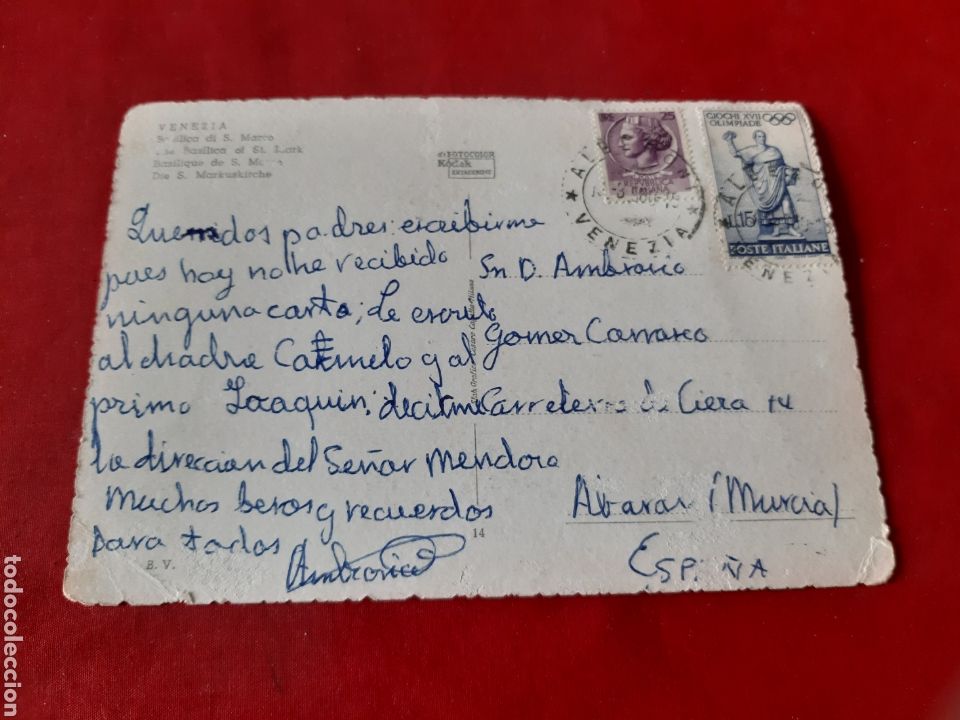 VENEZIA
Basilica di S. Marco
The Basilica of St. Mark
Basilique de S. Marco
Die S. Markuskirche
FOTOCOLOR
Kodak
EKTACHROME
25
REPUBBLICA
ITALIANA
VENEZIA
GIOCHI XVII
OLIMPIADE
L.15
POSTE ITALIANE
Queridos padres: escribirme
pues hoy no he recibido
ninguna carta; le escrito
al chadre Carmelo y al
primo Joaquin; decirme
la direccion del Señor Mendoza
Muchos besos y recuerdos
para todos
Ambrosio
Sn D. Ambrosio
Gomez Carrasco
Carretera de Cieza 14
Abaran (Murcia)
ESPAÑA
B. V.
14
todocoleccion